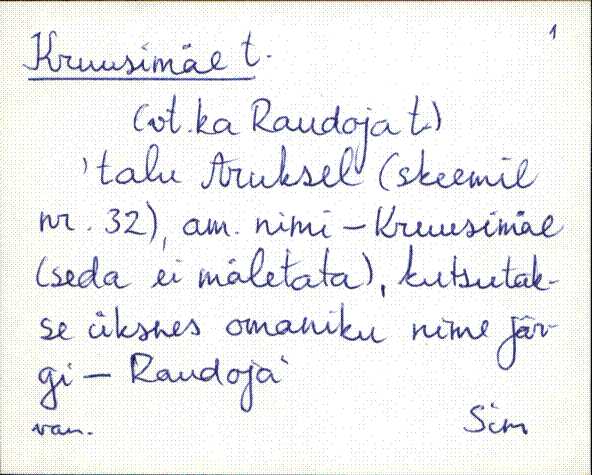 1
Kruusimäe t.
(vt. ka Raudoja t.)
'talu Aruksel (skeemil
nr. 32), am. nimi – Kruusimäe
(seda ei mäletata), kutsutak-
se üksnes omaniku nime jär-
gi – Raudoja'
van. Sim